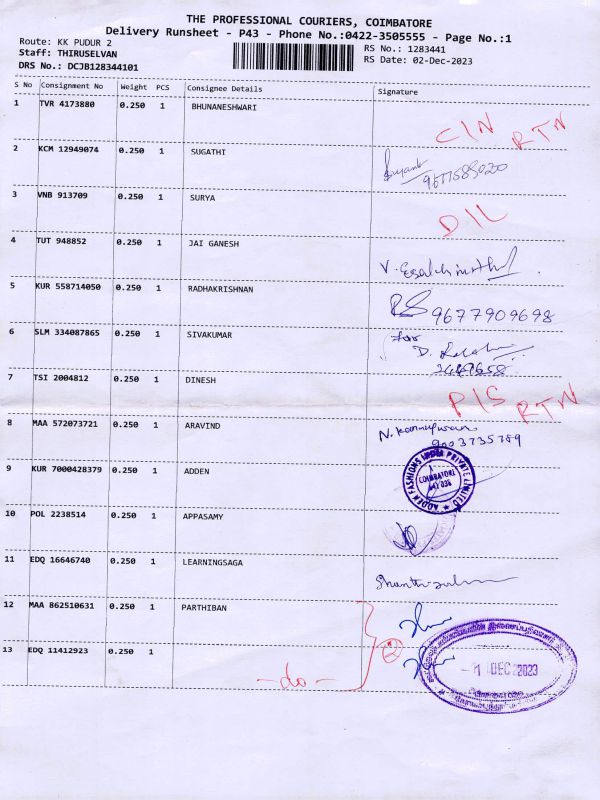 THE PROFESSIONAL COURIERS, COIMBATORE
Delivery Runsheet - P43 - Phone No.:0422-3505555 - Page No.:1
Route: KK PUDUR 2
RS No.: 1283441
Staff: THIRUSELVAN
RS Date: 02-Dec-2023
DRS No.: DCJB128344101
S No Consignment No Weight PCS Consignee Details Signature
1 TVR 4173880 0.250 1 BHUNANESHWARI
CIN RTN
2 KCM 12949074 0.250 1 SUGATHI
3 VNB 913709 0.250 1 SURYA
DIL
4 TUT 948852 0.250 1 JAI GANESH
5 KUR 558714050 0.250 1 RADHAKRISHNAN
9677909698
6 SLM 334087865 0.250 1 SIVAKUMAR
for
D.
7 TSI 2004812 0.250 1 DINESH
PIS RTN
8 MAA 572073721 0.250 1 ARAVIND
9003735789
9 KUR 7000428379 0.250 1 ADDEN
ADDEN FASHIONS INDIA PRIVATE LIMITED
COIMBATORE
641 038
10 POL 2238514 0.250 1 APPASAMY
11 EDQ 16646740 0.250 1 LEARNINGSAGA
12 MAA 862510631 0.250 1 PARTHIBAN
2
13 EDQ 11412923 0.250 1
-do-
DEC 2023